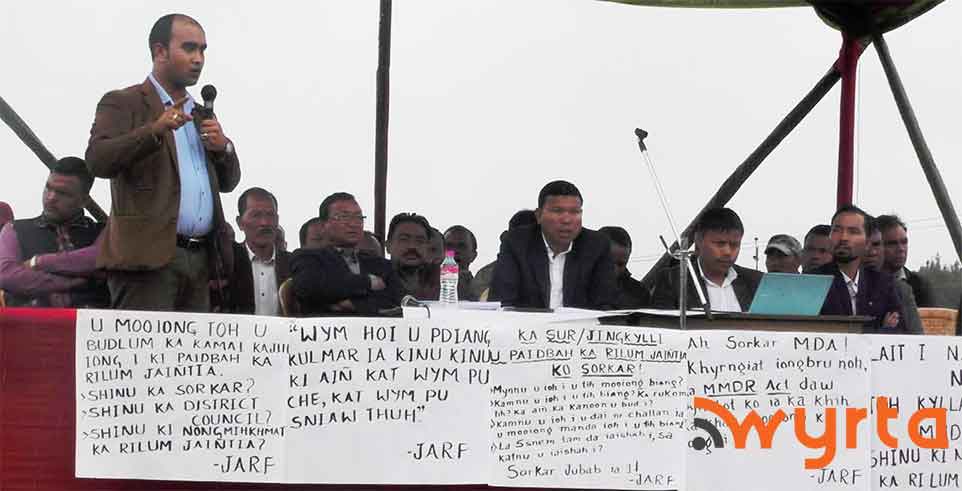 U MOOIONG TOH U
BUDLUM KA KAMAI KAJIH
IONG I KI PAIDBAH KA
RILUM JAIÑTIA.
>SHINU KA SORKAR?
>SHINU KA DISTRICT
COUNCIL?
>SHINU KI NONGMIHKHMAT
KA RILUM JAIÑTIA?
-JARF
"WYM HOI U PDIANG
KULMAR IA KINU KINU
KI AJÑ KAT WYM PU
CHE, KAT WYM PU
SNIAW THUH"
-JARF
KA SUR/JINGKYLLI
U PAIDBAH KA RILUM JAIÑTIA
KO SORKAR!
>Mynnu u ioh i u tih mooiong biang?
>Kamnu u ioh i u tih biang? Ka rukom
tih? Ka ain ka kanoon u bud?
>Kamnu u ioh i u dei ñi challan ia
u mooiong manda ioh i u tih biang?
Sorkar Jubab ia ji
-JARF
Ah Sorkar MDA!
Khyrngiat iongbru noh,
MMDR Act daw
ko ia ka khih
-JARF
LAIT I
KYLLA
SHINU KI N
KA RILUM
wyrta